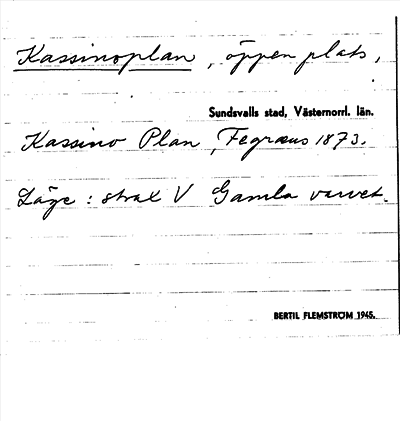 Kassinoplan, öppen plats,
Sundsvalls stad, Västernorrl. län.
Kassino Plan, Fegraeus 1873.
Läge: strax V Gamla varvet.
BERTIL FLEMSTRÖM 1945.